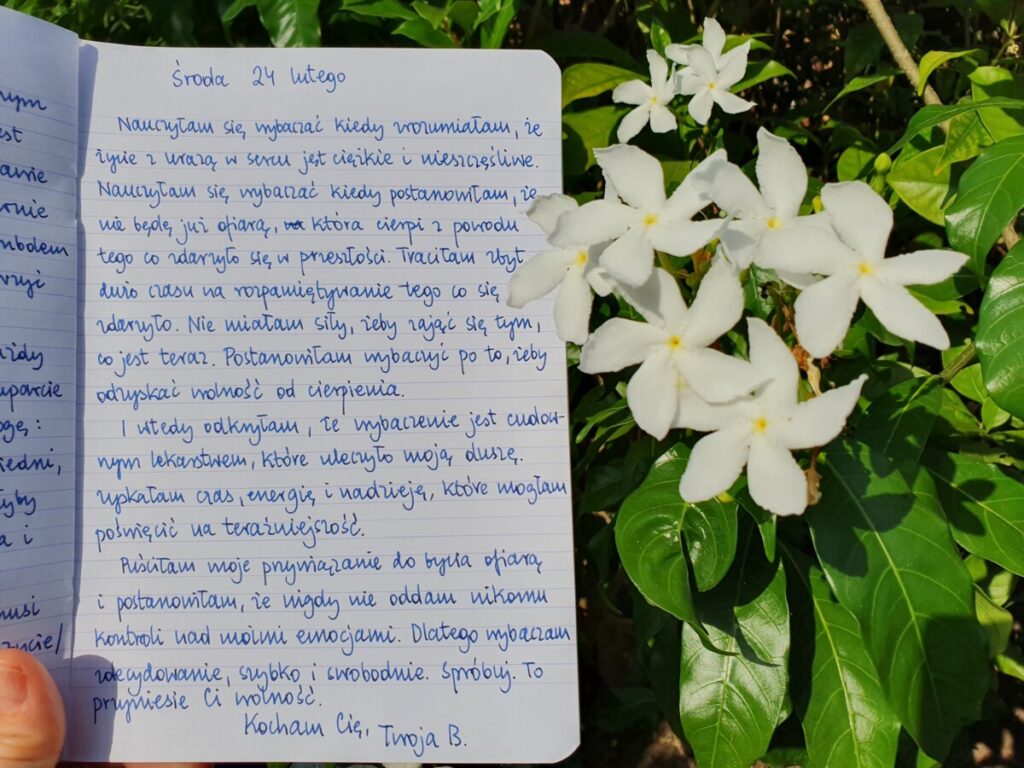 nym
est
awie
ornie
mbolem
rzyi
ażdy
uparcie
ogę:
iedni,
yby
a i
musi
życie/
Środa 24 lutego
Nauczyłam się wybaczać kiedy zrozumiałam, że
życie z urazą w sercu jest ciężkie i nieszczęśliwe.
Nauczyłam się wybaczać kiedy postanowiłam, że
nie będę już ofiarą, która cierpi z powodu
tego co zdarzyło się w przeszłości. Traciłam zbyt
dużo czasu na rozpamiętywanie tego co się
zdarzyło. Nie miałam siły, żeby zająć się tym,
co jest teraz. Postanowiłam wybaczyć po to, żeby
odzyskać wolność od cierpienia.
I wtedy odkryłam, że wybaczenie jest cudow-
nym lekarstwem, które uleczyło moją duszę.
Zyskałam czas, energię i nadzieję, które mogłam
poświęcić na teraźniejszość.
Puściłam moje przywiązanie do bycia ofiarą
i postanowiłam, że nigdy nie oddam nikomu
kontroli nad moimi emocjami. Dlatego wybaczam
zdecydowanie, szybko i swobodnie. Spróbuj. To
przyniesie Ci wolność.
Kocham Cię, Twoja B.